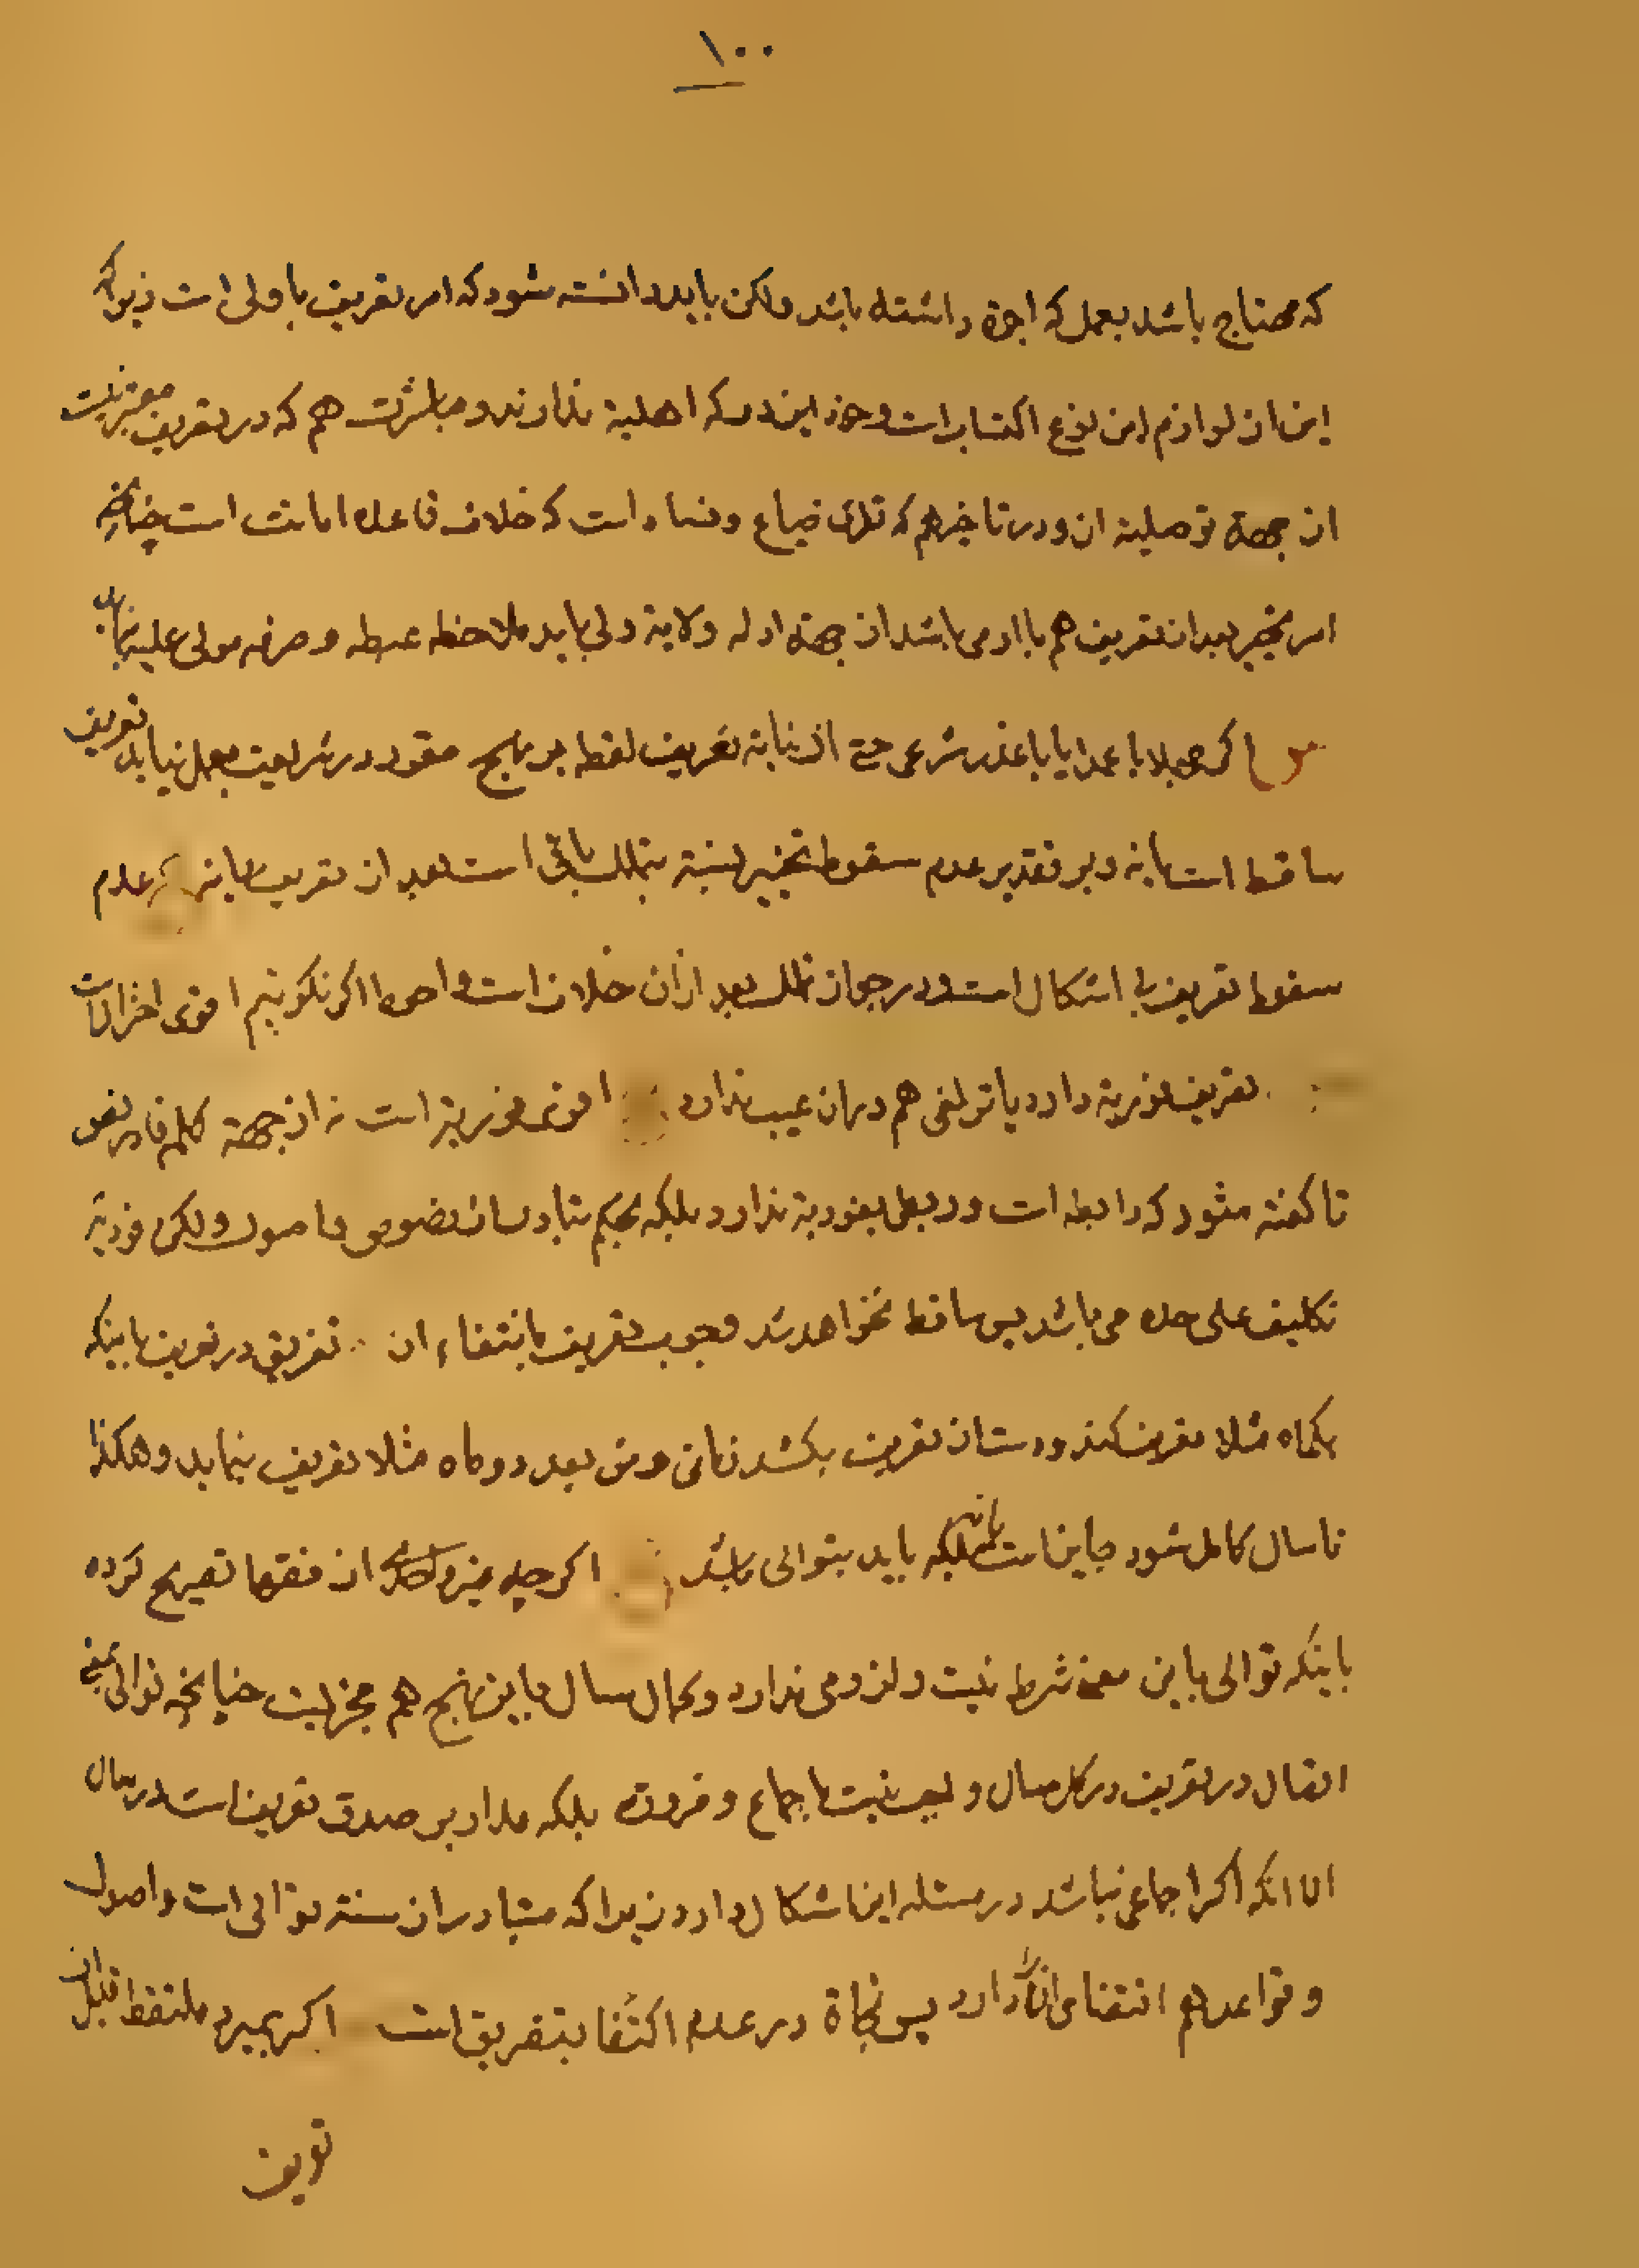 ۱۰۰
که محتاج باشد بعمل که اجرة داشته باشد ولکن باید دانسته شود که امر تعریف با ولی است زیراکه
این از لوازم این نوع اکتساب است و خود که اهلیة ندارند و مباشرت هم که در تعریف معتبر نیست
از جهة توصلیة ان و در تاخیر هم که ضیاع و فساد است که خلاف قاعده امانت است چنانچه
امر تخییر بعد از تعریف هم با او می باشد از جهة ادله ولایة ولی باید ملاحظه غبطه و صرفه مولی علیه نماید
س اگر جهلا یا عمدا یا با عذر شرعی حتی تعریف لقطه بر نهج مقرر در شریعت بعمل نیاید تعریف
ساقط است یا نه و بر تقدیر عدم سقوط تخییر نسبة بتملك باقی است بعد از تعریف یا نه ج عدم
سقوط تعریف بی اشکال است و در جواز تملك بعد از ان خلاف است و احوط اگر نگوئیم اقوی
تعریف فوریة دارد یا تراخی هم در ان عیب ندارد اقوی فوریة است نه از جهة کلمه فا در نص
تا گفته شود که رابطه است و ربطی بفوریة ندارد بلکه بحکم تبادر از نصوص و اصول ولکن فوریة
تکلیف علی حده می باشد پس ساقط نخواهد شد وجوب تعریف بانتفاء ان تفریق در تعریف باینکه
یکماه مثلا تعریف کند و دست از تعریف بکشد زمانی و من بعد دو ماه مثلا تعریف نماید و هکذا
تا سال کامل شود جایز است یا نه بلکه باید بتوالی باشد اگر چه از فقها تصریح کرده
باینکه توالی باین معنی شرط نیست و لزومی ندارد و کمال سال باین نهج هم مجزیست چنانچه توالی بمعنی
اتصال در تعریف در کل سال واجب نیست باجماع و ضرورة بلکه مدار بر صدق تعریف است در سال
الا انکه اگر اجماعی نباشد در مسئله این اشکال دارد زیرا که متبادر از سنة توالی است و اصول
و قواعد هم اقتضای انرا دارد پس نجاة در عدم اکتفا بتفریق است اگر بمیرد ملتقط قبل از
تعریف